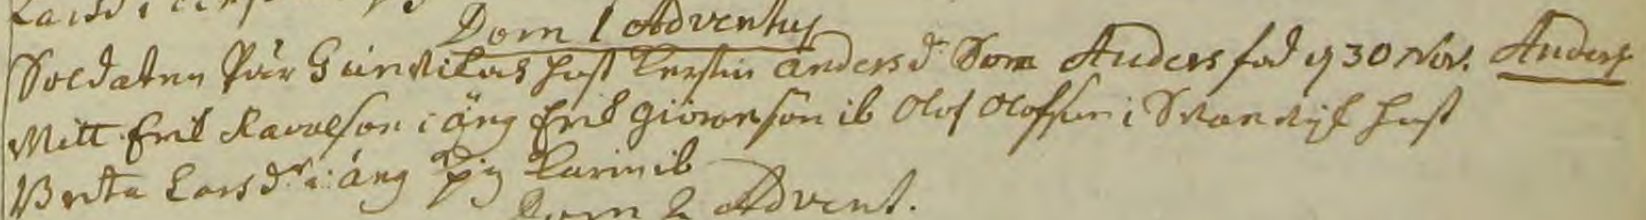 Dom 1 Adventus
Soldaten Pär Gunvikas hust Kerstin Andersd Son Anders föd d 30 Nov. Anders
Witt. Erik Larsson i äng Erik Giöransson ib Olof Olofsson i hust
Brita Larsdr i äng pig Karin ib
Dom 2 Advent.